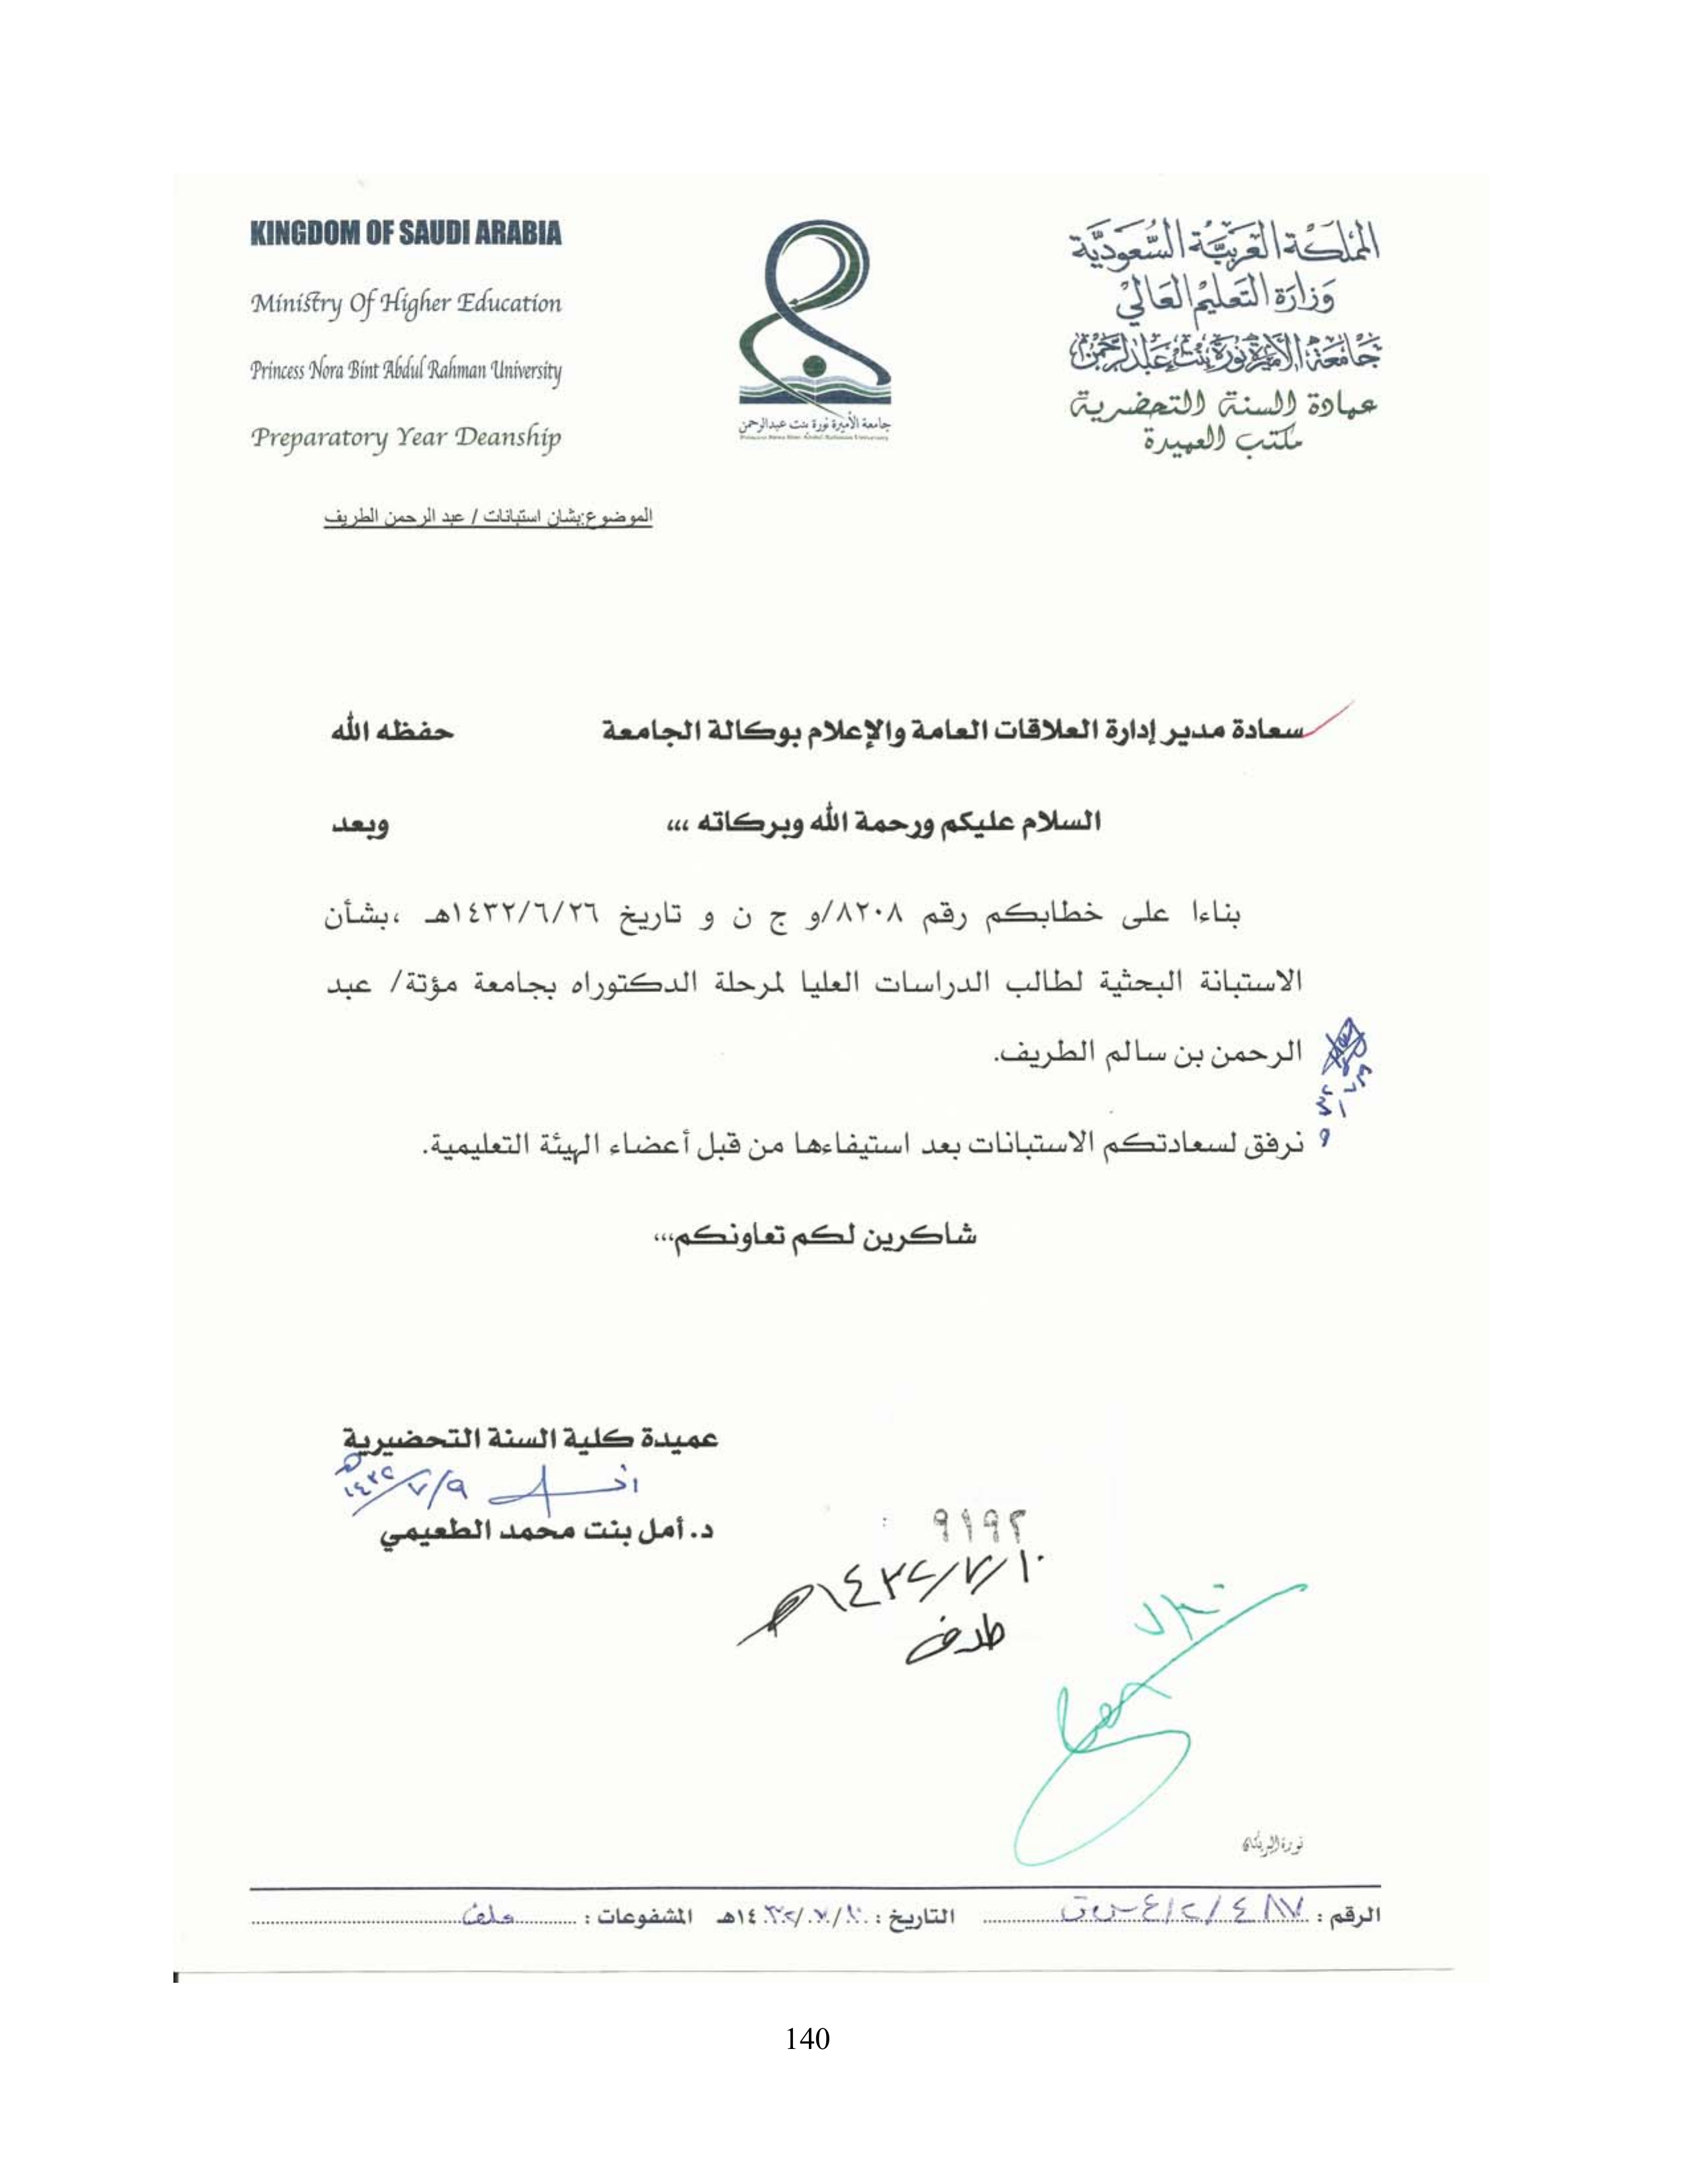 KINGDOM OF SAUDI ARABIA
Ministry Of Higher Education
Princess Nora Bint Abdul Rahman University
Preparatory Year Deanship
جامعة الأميرة نورة بنت عبدالرحمن
Princess Nora Bint Abdul Rahman University
المملكة العربية السعودية
وزارة التعليم العالي
جامعة الأميرة نورة بنت عبدالرحمن
عمادة السنة التحضيرية
مكتب العميدة
الموضوع:بشان استبانات / عبد الرحمن الطريف
سعادة مدير إدارة العلاقات العامة والإعلام بوكالة الجامعة حفظه الله
السلام عليكم ورحمة الله وبركاته ،،، وبعد
بناءا على خطابكم رقم ٨٢٠٨/و ج ن و تاريخ ١٤٣٢/٦/٢٦هـ ،بشأن
الاستبانة البحثية لطالب الدراسات العليا لمرحلة الدكتوراه بجامعة مؤتة/ عبد
الرحمن بن سالم الطريف.
و نرفق لسعادتكم الاستبانات بعد استيفاءها من قبل أعضاء الهيئة التعليمية.
شاكرين لكم تعاونكم،،،
عميدة كلية السنة التحضيرية
١٤٣٢/٧/٩هـ
د. أمل بنت محمد الطعيمي
٩١٩٢
١٤٣٢/٧/١٠هـ
الرقم : التاريخ : ١٤٣٢/٧/١٠هـ المشفوعات : ملف
140